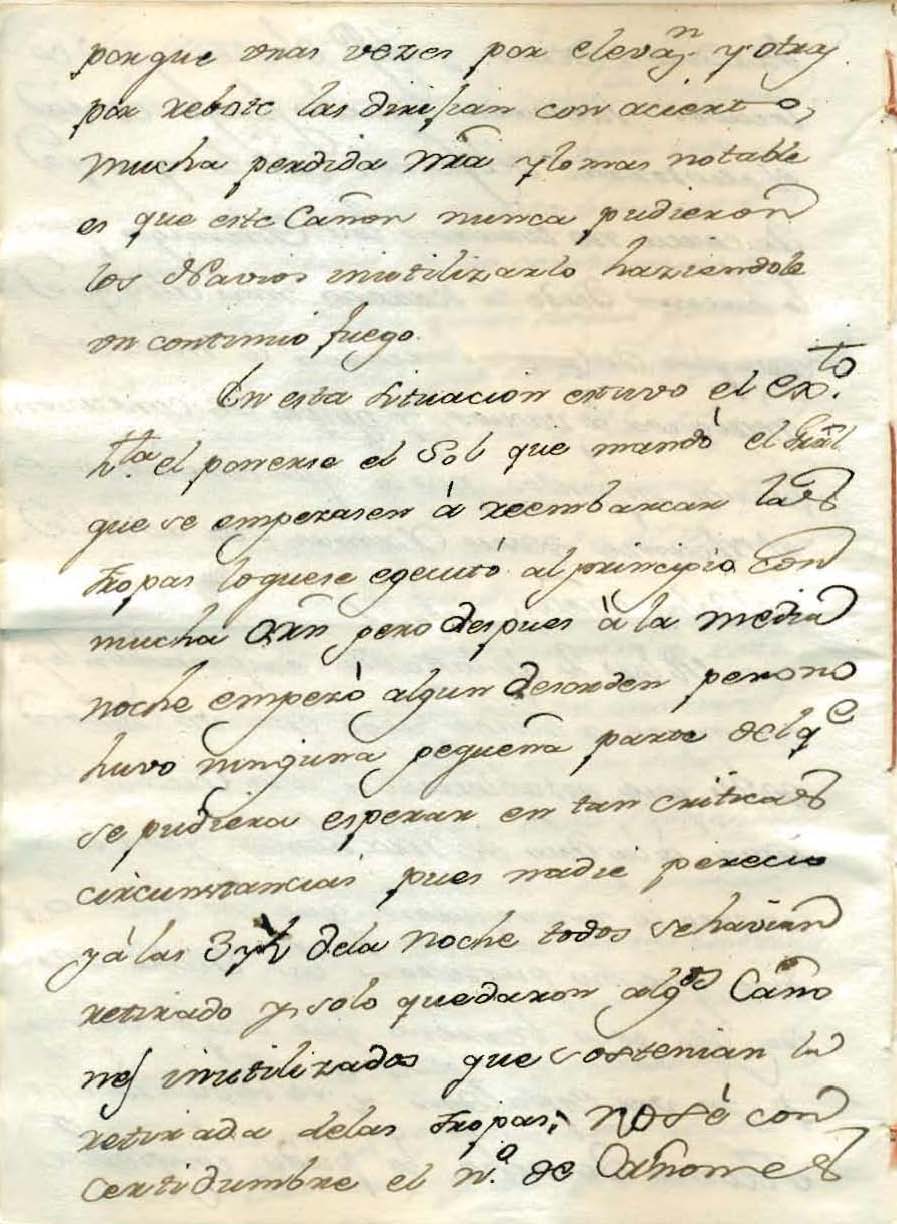 porque unas vezes por elevaz.n y otras
por rebote las dirijian con acierto,
mucha perdida nrã y lo mas notable
es que este Cañon nunca pudieron
los Navios inutilizarlo haziendole
un continuo fuego.
En esta situacion estuvo el ex.to
h.ta el ponerse el Sol que mandó el Grãl
que se empezasen á reembarcar las
tropas lo que se egecutó al principio con
mucha Orñ pero despues à la media
noche empezò algun desorden pero no
huvo ninguna pequeña parte del q.e
se pudiera esperar en tan criticas
circunstancias pues nadie perecio
y à las 3 y dela noche todos se havian
retirado y solo quedaron alg.os Caño
nes inutilizados que sostenian la
retirada delas tropas; no sé con
certidumbre el n.o de Cañones